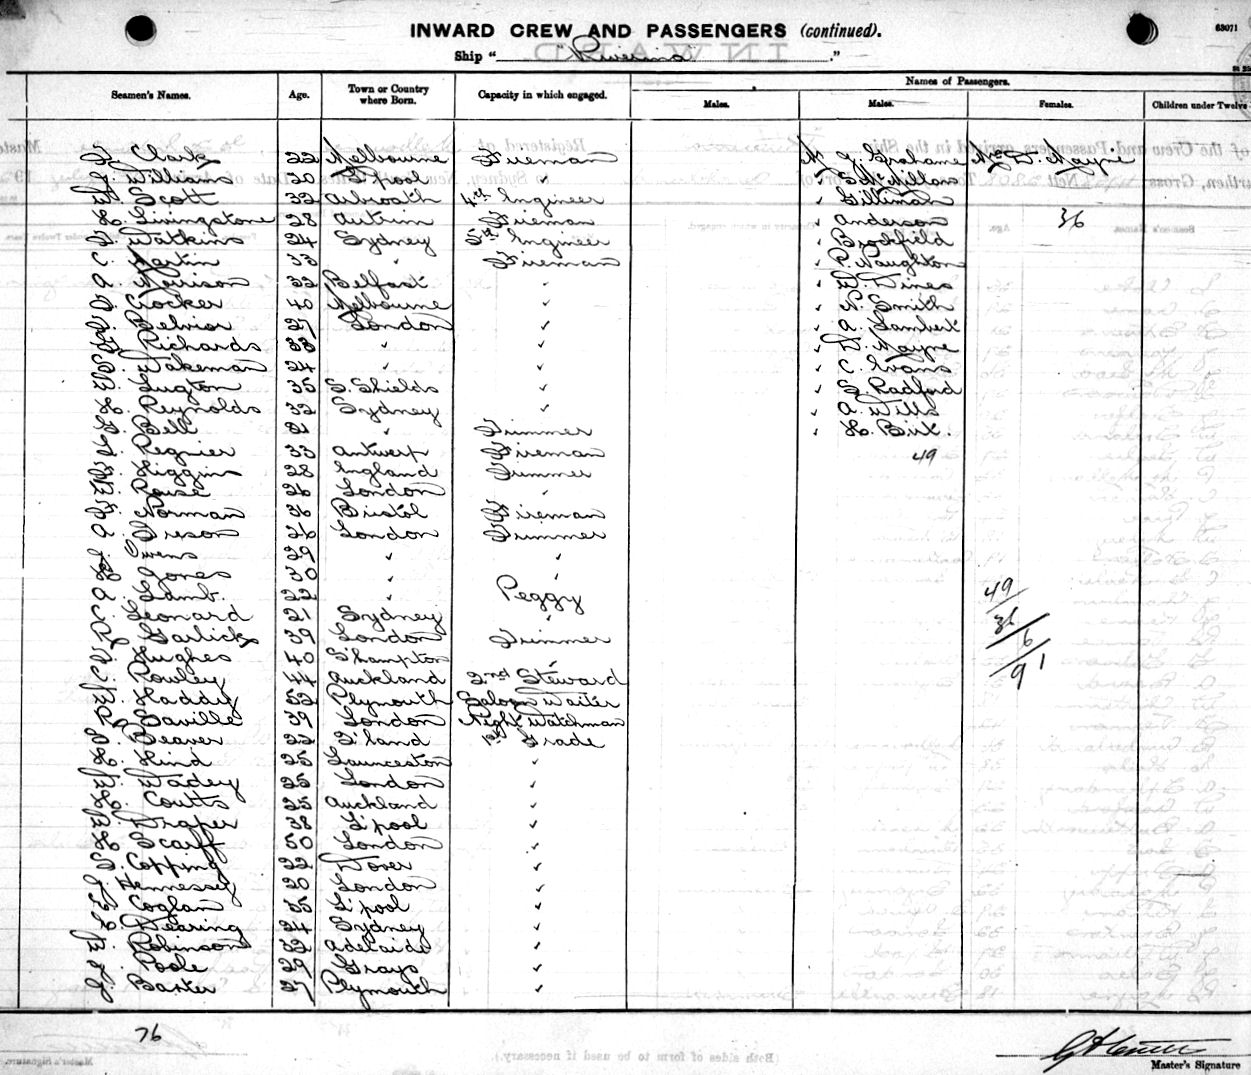 63071
INWARD CREW AND PASSENGERS (continued).
Ship " Riverina ."
Seamen's Names. Age. Town or Country where Born. Capacity in which engaged. Names of Passengers.
Males. Males. Females. Children under Twelve
Clark 22 Melbourne Fireman Mr J. Grahame Mrs D. Mayne
J. Williams 30 L'pool " " S. McMillan
Scott 32 Arbroath 4th Engineer " Gilliman
L. Livingstone 28 Antrim Fireman " Anderson 36
Watkins 24 Sydney 5th Engineer " Brockfield
C. Martin 33 " Fireman " P. Naughton
A. Morrison 32 Belfast " " Hines
Crocker 40 Melbourne " " Smith
Belvior 27 London " " A. Lambert
Richards 33 " " " D. Mayne
Wakeman 24 " " " C. Evans
Lugton 35 S. Shields " " S. Radford
L. Reynolds 32 Sydney " " A. Wills
Bell 21 " Trimmer " H. Birt.
Regnier 33 Antwerp Fireman 49
Higgins 28 England Trimmer
Rouse 26 London "
Norman 36 Bristol Fireman
A. Breson 26 London Trimmer
Owens 29 " "
Jones 30 " "
A. Lamb. 22 " Peggy
C. Leonard 21 Sydney " 49
Garlick 39 London Trimmer 36
Hughes 40 S'hampton " 6
C. Rowley 44 Auckland 2nd Steward 91
Haddy 52 Plymouth Saloon Waiter
Saville 39 London Night Watchman
Beaver 22 I'land 1st Grade
Hind 25 Launceston "
Wadey 25 London "
Coutts 25 Auckland "
Draper 38 L'pool "
Scarf 50 London "
Copping 22 Dover "
J. Hennessey 20 London "
Coglan 35 L'pool "
Dearing 24 Sydney "
Robinson 32 Adelaide "
Poole 29 Grays "
Baxter 27 Plymouth "
76
Master's Signature